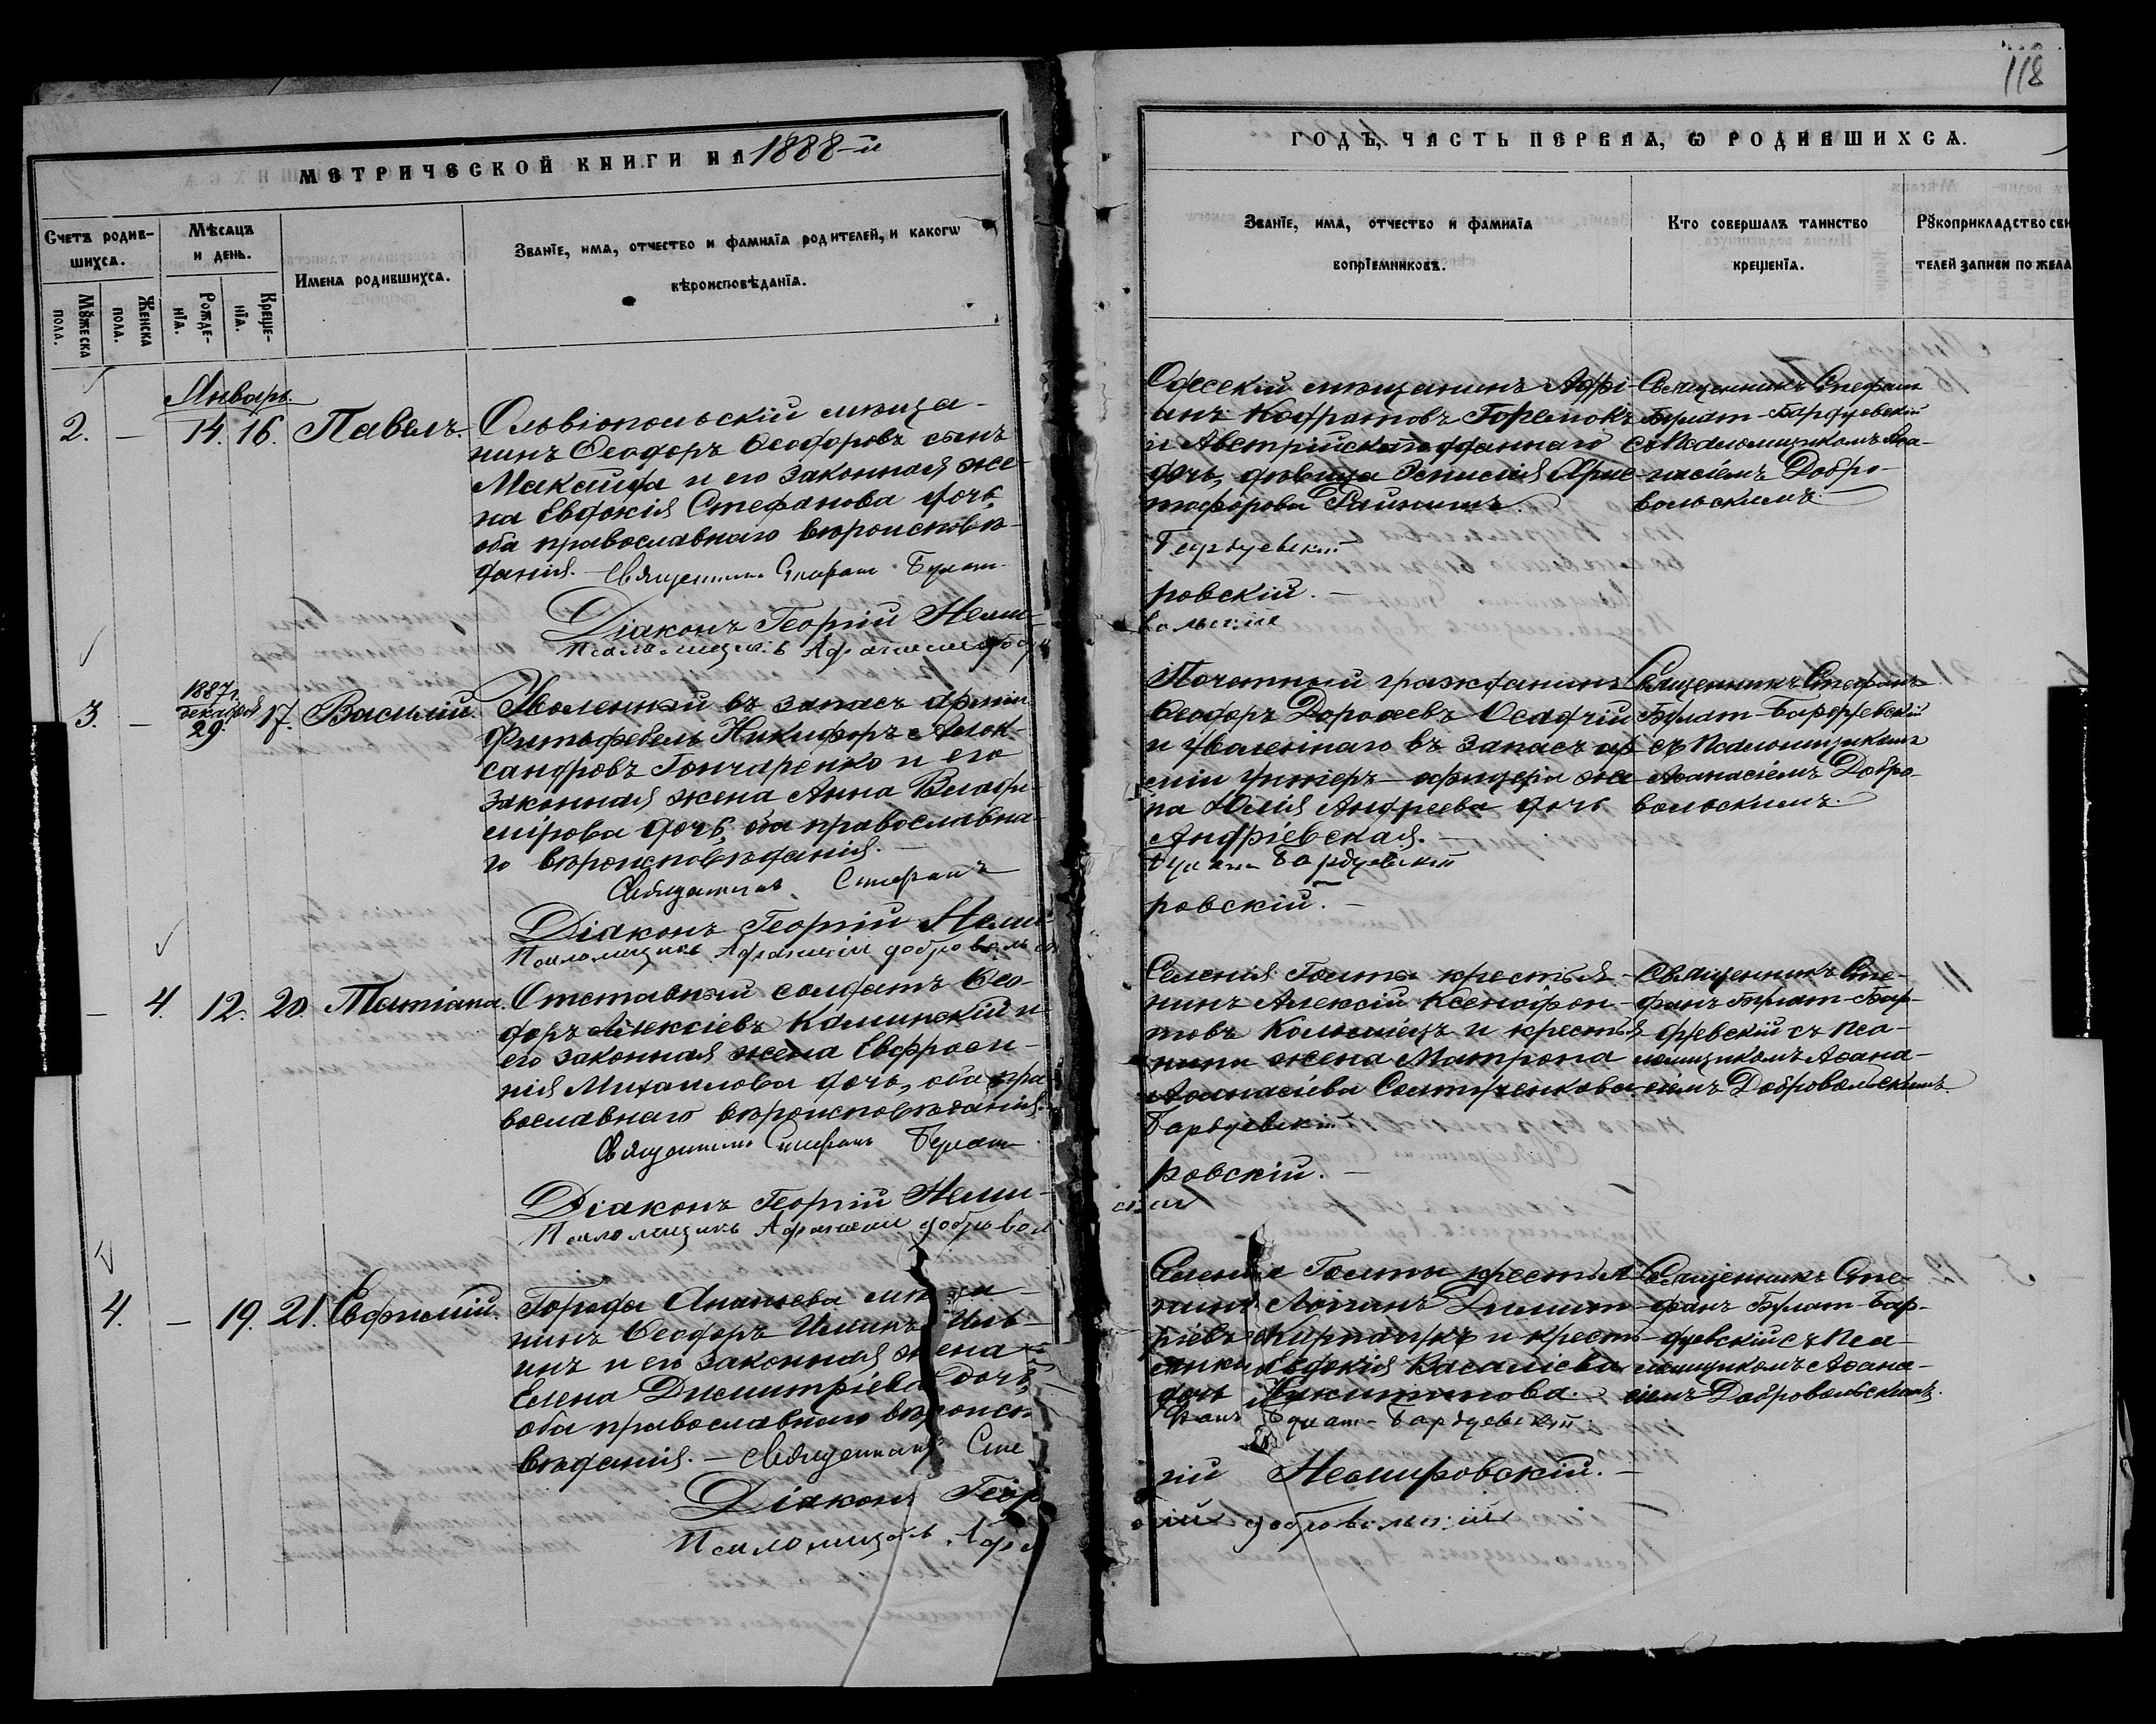 118
МЕТРИЧЕСКОЙ КНИГИ НА 1888-й
Счетъ родив-
шихсѧ.
Мѣсѧцъ
и день.
Имена родившихсѧ.
Званїе, имѧ, отчество и фамилїѧ родителей, и какогѡ
вѣроисповѣданїѧ.
Мꙋжеска
пола.
Женска
пола.
Рожде-
нїѧ.
Креще-
нїѧ.
Январь
2. — 14. 16. Павелъ.
Ольвіопольскій мѣща-
нинъ Ѳеодоръ Ѳеодоровъ сынъ
и его законная же-
на Евдокія Стефанова дочь,
оба православнаго вѣроисповѣ-
данія. — Священникъ Стефанъ Булат-
Діаконъ Георгій Неми-
Псаломщикъ Афанасій
1887 г.
декабря
3. — 29. 17. Василій.
Уволенный въ запасъ арміи
Фельдфебель Никифоръ Алек-
сандровъ Гончаренко и его
законная жена Анна Влади-
мірова дочь, оба православна-
го вѣроисповѣданія. —
Священникъ Стефанъ
Діаконъ Георгій Неми-
Псаломщикъ Афанасій добровольс
— 4. 12. 20. Татіана.
Отставный солдатъ Ѳео-
доръ Алексіевъ Каминскій и
его законная жена Евфроси-
нія Михаилова дочь, оба пра-
вославнаго вѣроисповѣданія. —
Священникъ Стефанъ Булат-
Діаконъ Георгій Неми-
Псаломщикъ Афанасій добровол
4. — 19. 21. Евфимій.
Города Ананьева мѣща-
нинъ Ѳеодоръ Иль-
инъ и его законная жена
Елена Димитріева дочь,
оба православнаго вѣроиспо-
вѣданія. — Священникъ Сте
Діаконъ Геор
Псаломщикъ Афа
ГОДЪ, ЧАСТЬ ПЕРВАѦ, Ѡ РОДИВШИХСѦ.
Званїе, имѧ, отчество и фамилїѧ
воспрїемниковъ.
Кто совершалъ таинство
крещенїѧ.
Рꙋкоприкладство сви
телей записи по жела
Одесскій мѣщанинъ Адрі-
анъ Кодратовъ
и Австрійскаго подданнаго
дочь, дѣвица Хрис-
тофорова
Бардуевскій
ровскій. —
вольскій
Священникъ Стефанъ
Булат-Бардуевскій
съ Псаломщикомъ Аѳа-
насіемъ Добро-
вольскимъ. —
Почетный гражданинъ
Ѳеодоръ Дороѳеевъ Осадчій
и уволеннаго въ запасъ ар-
міи унтеръ-офицера же-
на Юлія Андреева дочь
Андріевская. —
Булат Бардуевскій
ровскій. —
Священникъ Стефанъ
Булат-Бардуевскій
съ Псаломщикомъ
Аѳанасіемъ Добро-
вольскимъ.
Селенія Голты крестья-
нинъ Алексій Ксенофон-
товъ и крестья-
нина жена Матрона
Аѳанасіева
Бардуевскій
ровскій. —
скій
Священникъ Сте-
фанъ Булат-Бар-
дуевскій съ Пса-
ломщикомъ Аѳана-
сіемъ Добровольскимъ.
Селенія Голты крестья-
нинъ Димит-
ріевъ и кресть-
янка Евдокія Василіева
дочь
фанъ Булат-Бардуевскій
гій Немировскій. —
сій добровольскій
Священникъ Сте-
фанъ Булат-Бар-
дуевскій съ Пса-
ломщикомъ Аѳана-
сіемъ Добровольскимъ.